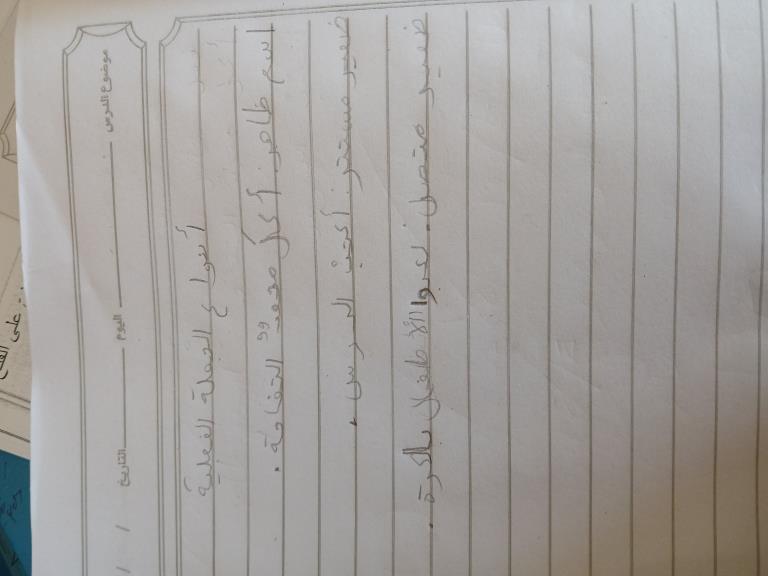 موضوع الدرس
اليوم
التاريخ / /
أنواع الجملة الفعلية
اسم ظاهر: أكلَ محمدٌ التفاحة.
ضمير مستتر: أكتبُ الدرس.
ضمير متصل: لعبوا الأطفال بالكرة.
على الفتح